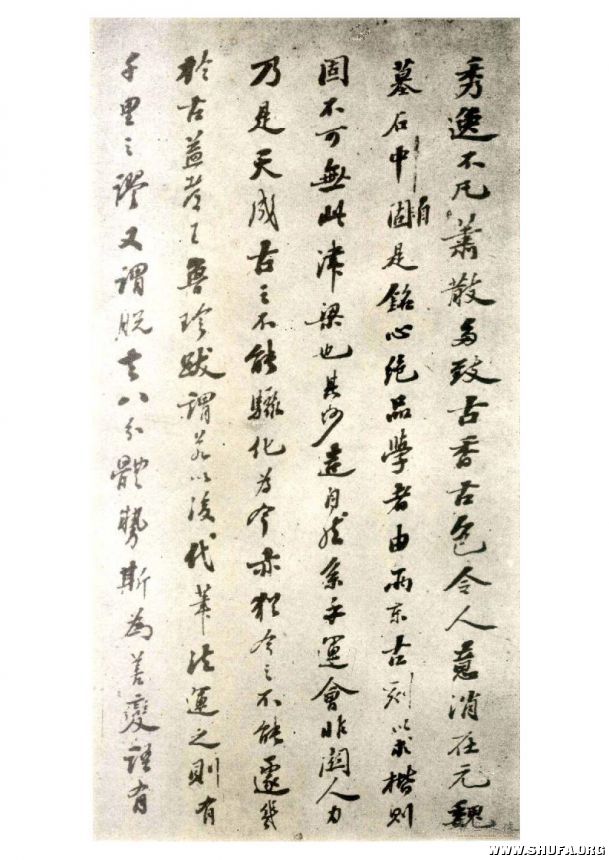 秀逸不凡蕭散多致古香古色令人意消在元魏
墓石中固是銘心絕品學者由兩京古刻以求楷則
固不可無此津梁也其妙造自然系乎運會非關人力
乃是天成古之不能驟化為今亦猶今之不能遽幾
於古蓋珍跋謂若以後代筆法運之則有
千里之謬又謂脫去八分體勢斯為善變語有
WWW.SHUFA.ORG